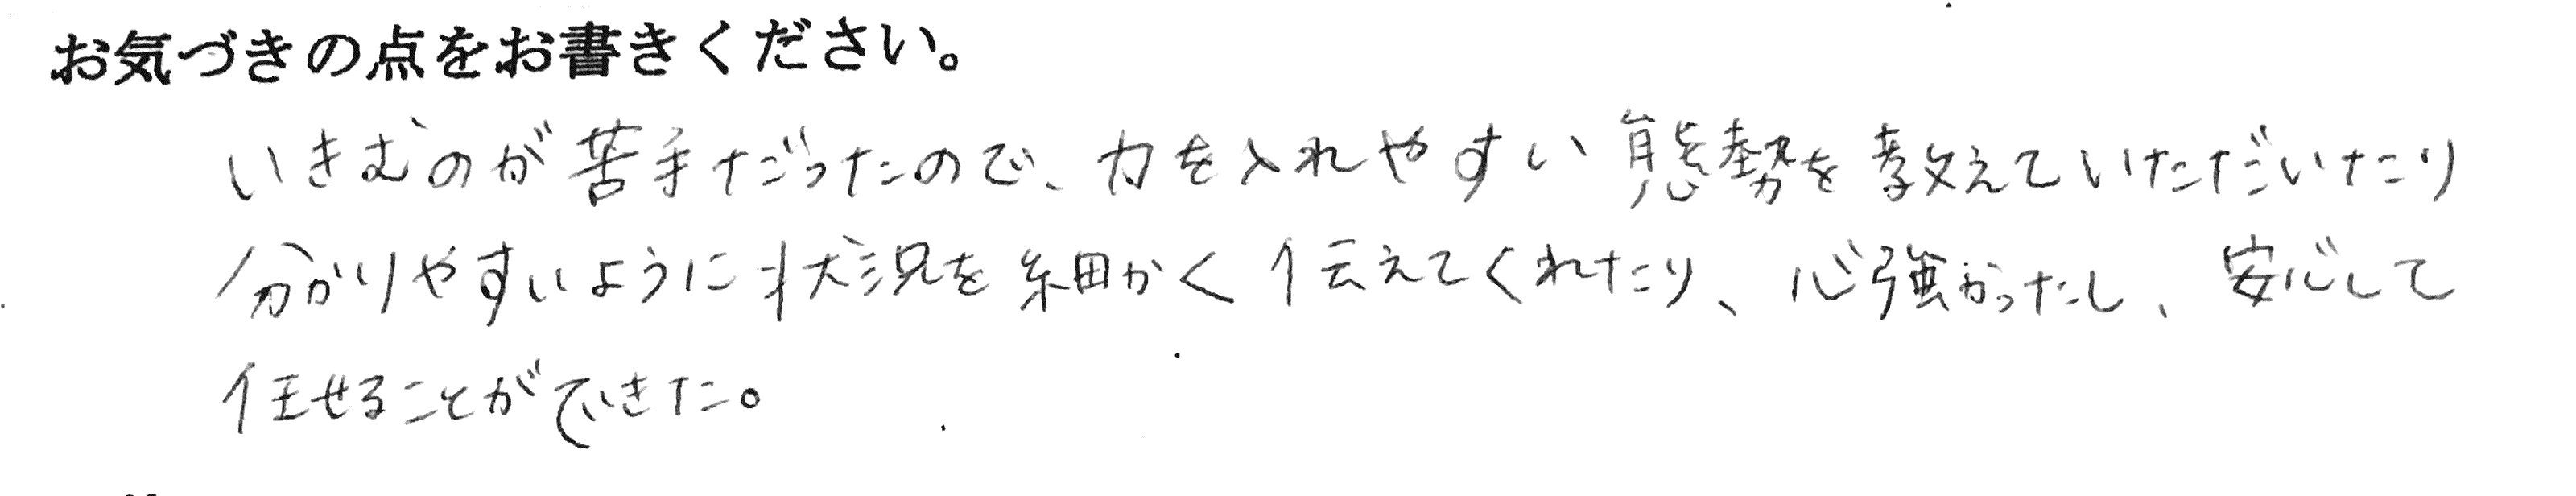 お気づきの点をお書きください。
いきむのが苦手だったので、力を入れやすい態勢を教えていただいたり
分かりやすいように状況を細かく伝えてくれたり、心強かったし、安心して
任せることができた。